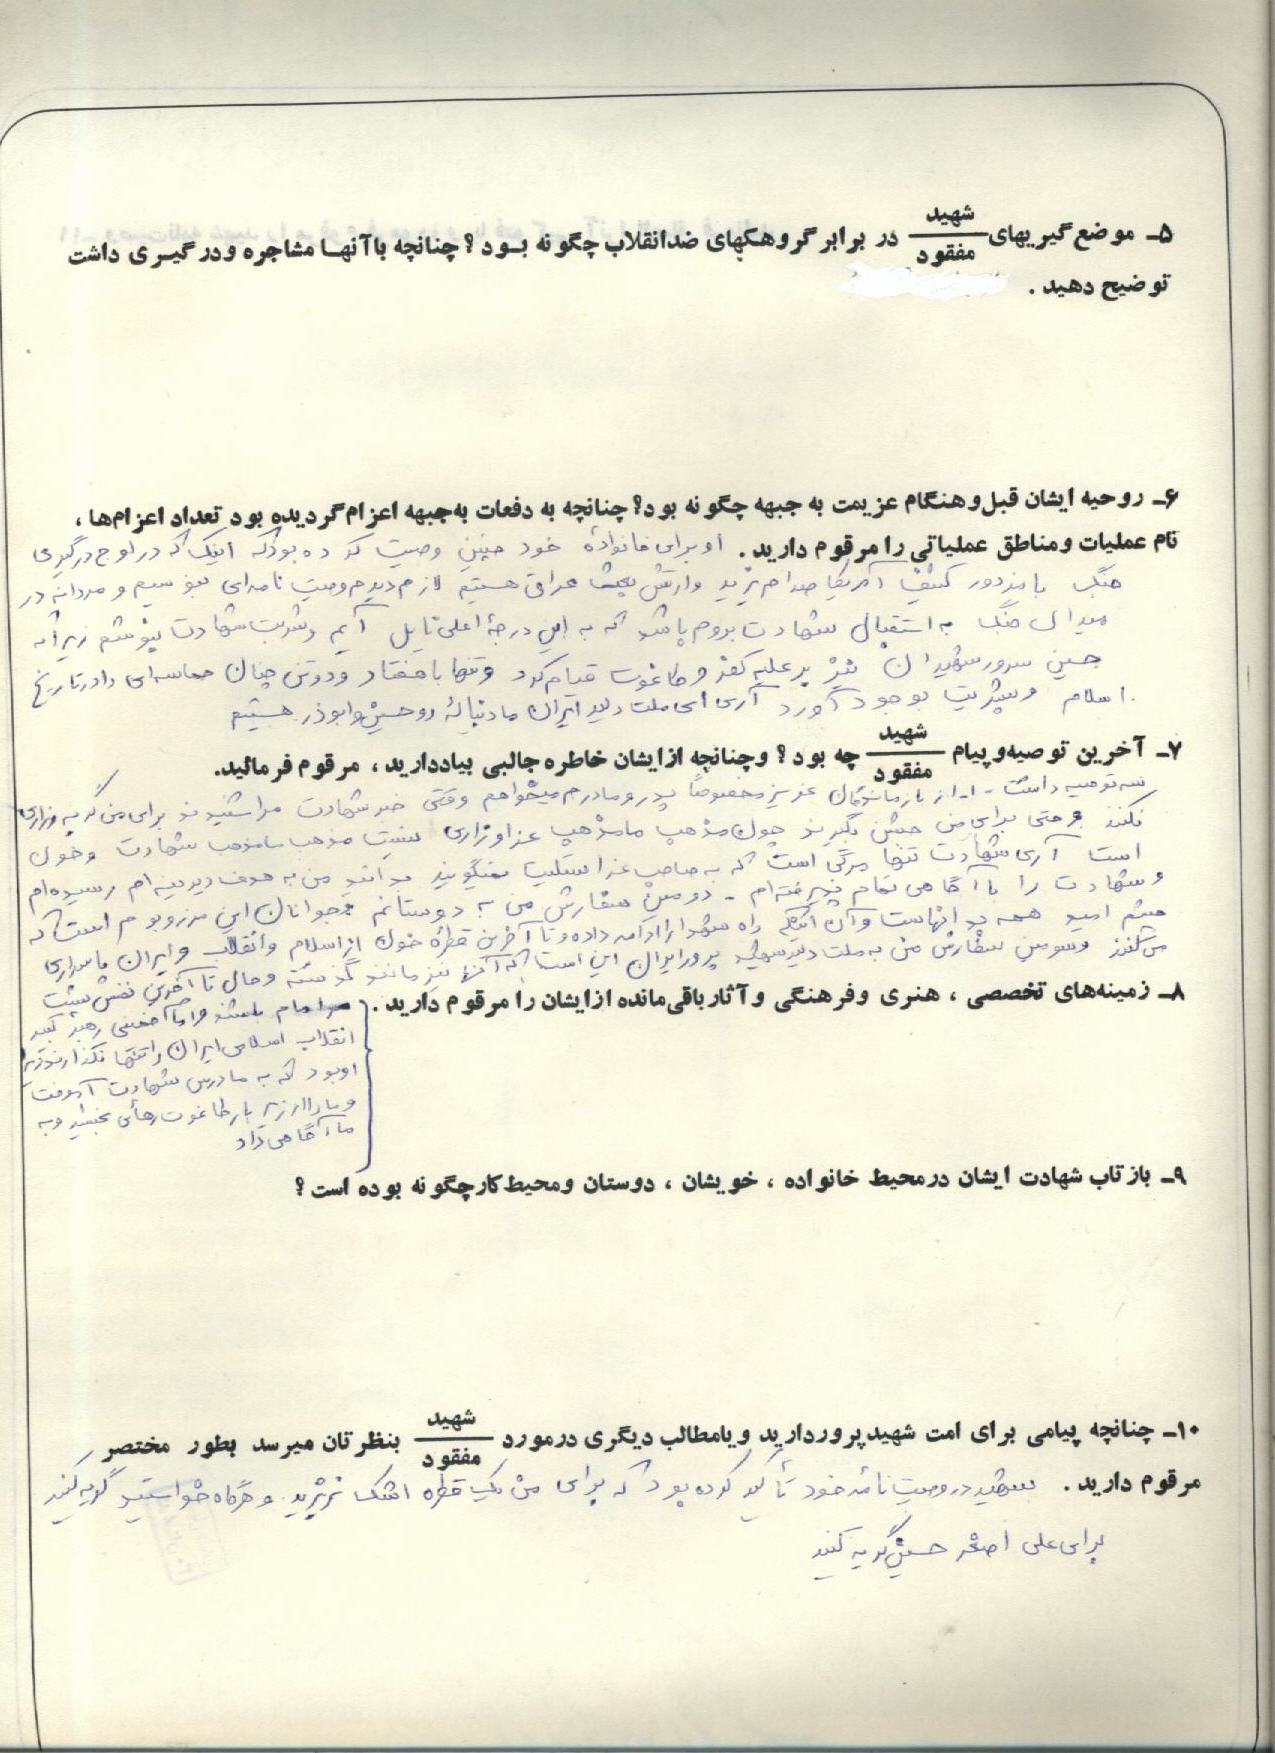 ۵ـ موضع گیریهای شهید/مفقود در برابر گروهکهای ضدانقلاب چگونه بود؟ چنانچه با آنها مشاجره و درگیری داشت
توضیح دهید.
۶ـ روحیه ایشان قبل و هنگام عزیمت به جبهه چگونه بود؟ چنانچه به دفعات به جبهه اعزام گردیده بود تعداد اعزام‌ها،
نام عملیات و مناطق عملیاتی را مرقوم دارید. او برای خانواده خود چنین وصیت کرده بود که اینک که در اوج درگیری
جنگ با مزدور کثیف آمریکا صدام یزید و ارتش بعث عراق هستیم لازم دیدم وصیت نامه‌ای بنویسم و مردانه در
میدان جنگ به استقبال شهادت بروم باشد که به این درجهٔ اعلی نایل آیم و شربت شهادت بنوشم زیرا که
حسین سرور شهیدان نیز بر علیه کفر و طاغوت قیام کرد و تنها با هفتاد و دو تن چنان حماسه‌ای در تاریخ
اسلام و بشریت بوجود آورد آری ای ملت دلیر ایران ما دنباله رو حسین و ابوذر هستیم
۷ـ آخرین توصیه و پیام شهید/مفقود چه بود؟ و چنانچه از ایشان خاطره جالبی بیاد دارید، مرقوم فرمائید.
سه توصیه داشت ـ ۱ـ از بازماندگان عزیز مخصوصاً پدر و مادرم میخواهم وقتی خبر شهادت مرا شنیدند برای من گریه و زاری
نکنند و حتی برای من جشن بگیرند چون مذهب ما مذهب عزا و زاری نیست مذهب ما مذهب شهادت و خون
است آری شهادت تنها مرگی است که به صاحب عزا تسلیت نمیگویند بدانید من به هدف دیرینه‌ام رسیده‌ام
و شهادت را با آگاهی تمام پذیرفته‌ام ـ دومین سفارش من به دوستانم و جوانان این مرز و بوم است که
چشم امید همه به آنهاست و آن اینکه راه شهدا را ادامه داده و تا آخرین قطرهٔ خون از اسلام و انقلاب و ایران پاسداری
می‌کنند و سومین سفارش من به ملت شهید پرور ایران این است که آنها نیز مانند گذشته و حال تا آخرین نفس پشت
۸ـ زمینه‌های تخصصی، هنری و فرهنگی و آثار باقی‌مانده از ایشان را مرقوم دارید.
سر امام باشند و امام خمینی رهبر کبیر
انقلاب اسلامی ایران را تنها نگذارند زیرا
او بود که به ما درس شهادت آموخت
و ما را از زیر بار طاغوت رهائی بخشید و به
ما آگاهی داد
۹ـ بازتاب شهادت ایشان در محیط خانواده، خویشان، دوستان و محیط کار چگونه بوده است؟
۱۰ـ چنانچه پیامی برای امت شهیدپرور دارید و یا مطالب دیگری در مورد شهید/مفقود بنظرتان میرسد بطور مختصر
مرقوم دارید. شهید در وصیت نامه خود تأکید کرده بود که برای من یک قطره اشک نریزید. و هرگاه خواستید گریه کنید
برای علی اصغر حسین گریه کنید